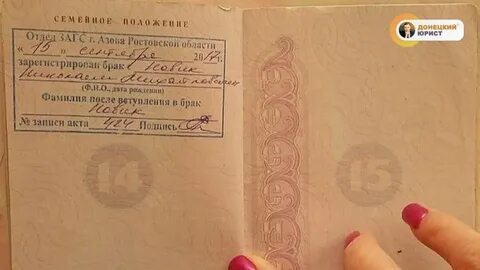 СЕМЕЙНОЕ ПОЛОЖЕНИЕ
Отдел ЗАГС г. Азова Ростовской области
"15" сентября 2017 г.
зарегистрирован брак Новик
Николаем
(Ф.И.О., дата рождения)
Фамилия после вступления в брак
Новик
№ записи акта 424 Подпись
14
15
ДОНЕЦКИЙ
ЮРИСТ